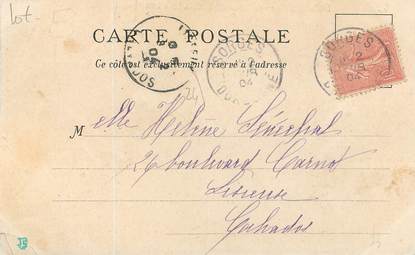 Lot-
CARTE POSTALE
Ce côté est exclusivement réservé à l'adresse
GORGES
04
GORGES
2
04
24
Melle Hélène Sénéchal
26 boulevard Carnot
Lisieux
Calvados